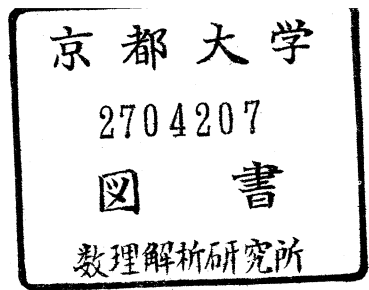 京都大学
2704207
図書
数理解析研究所